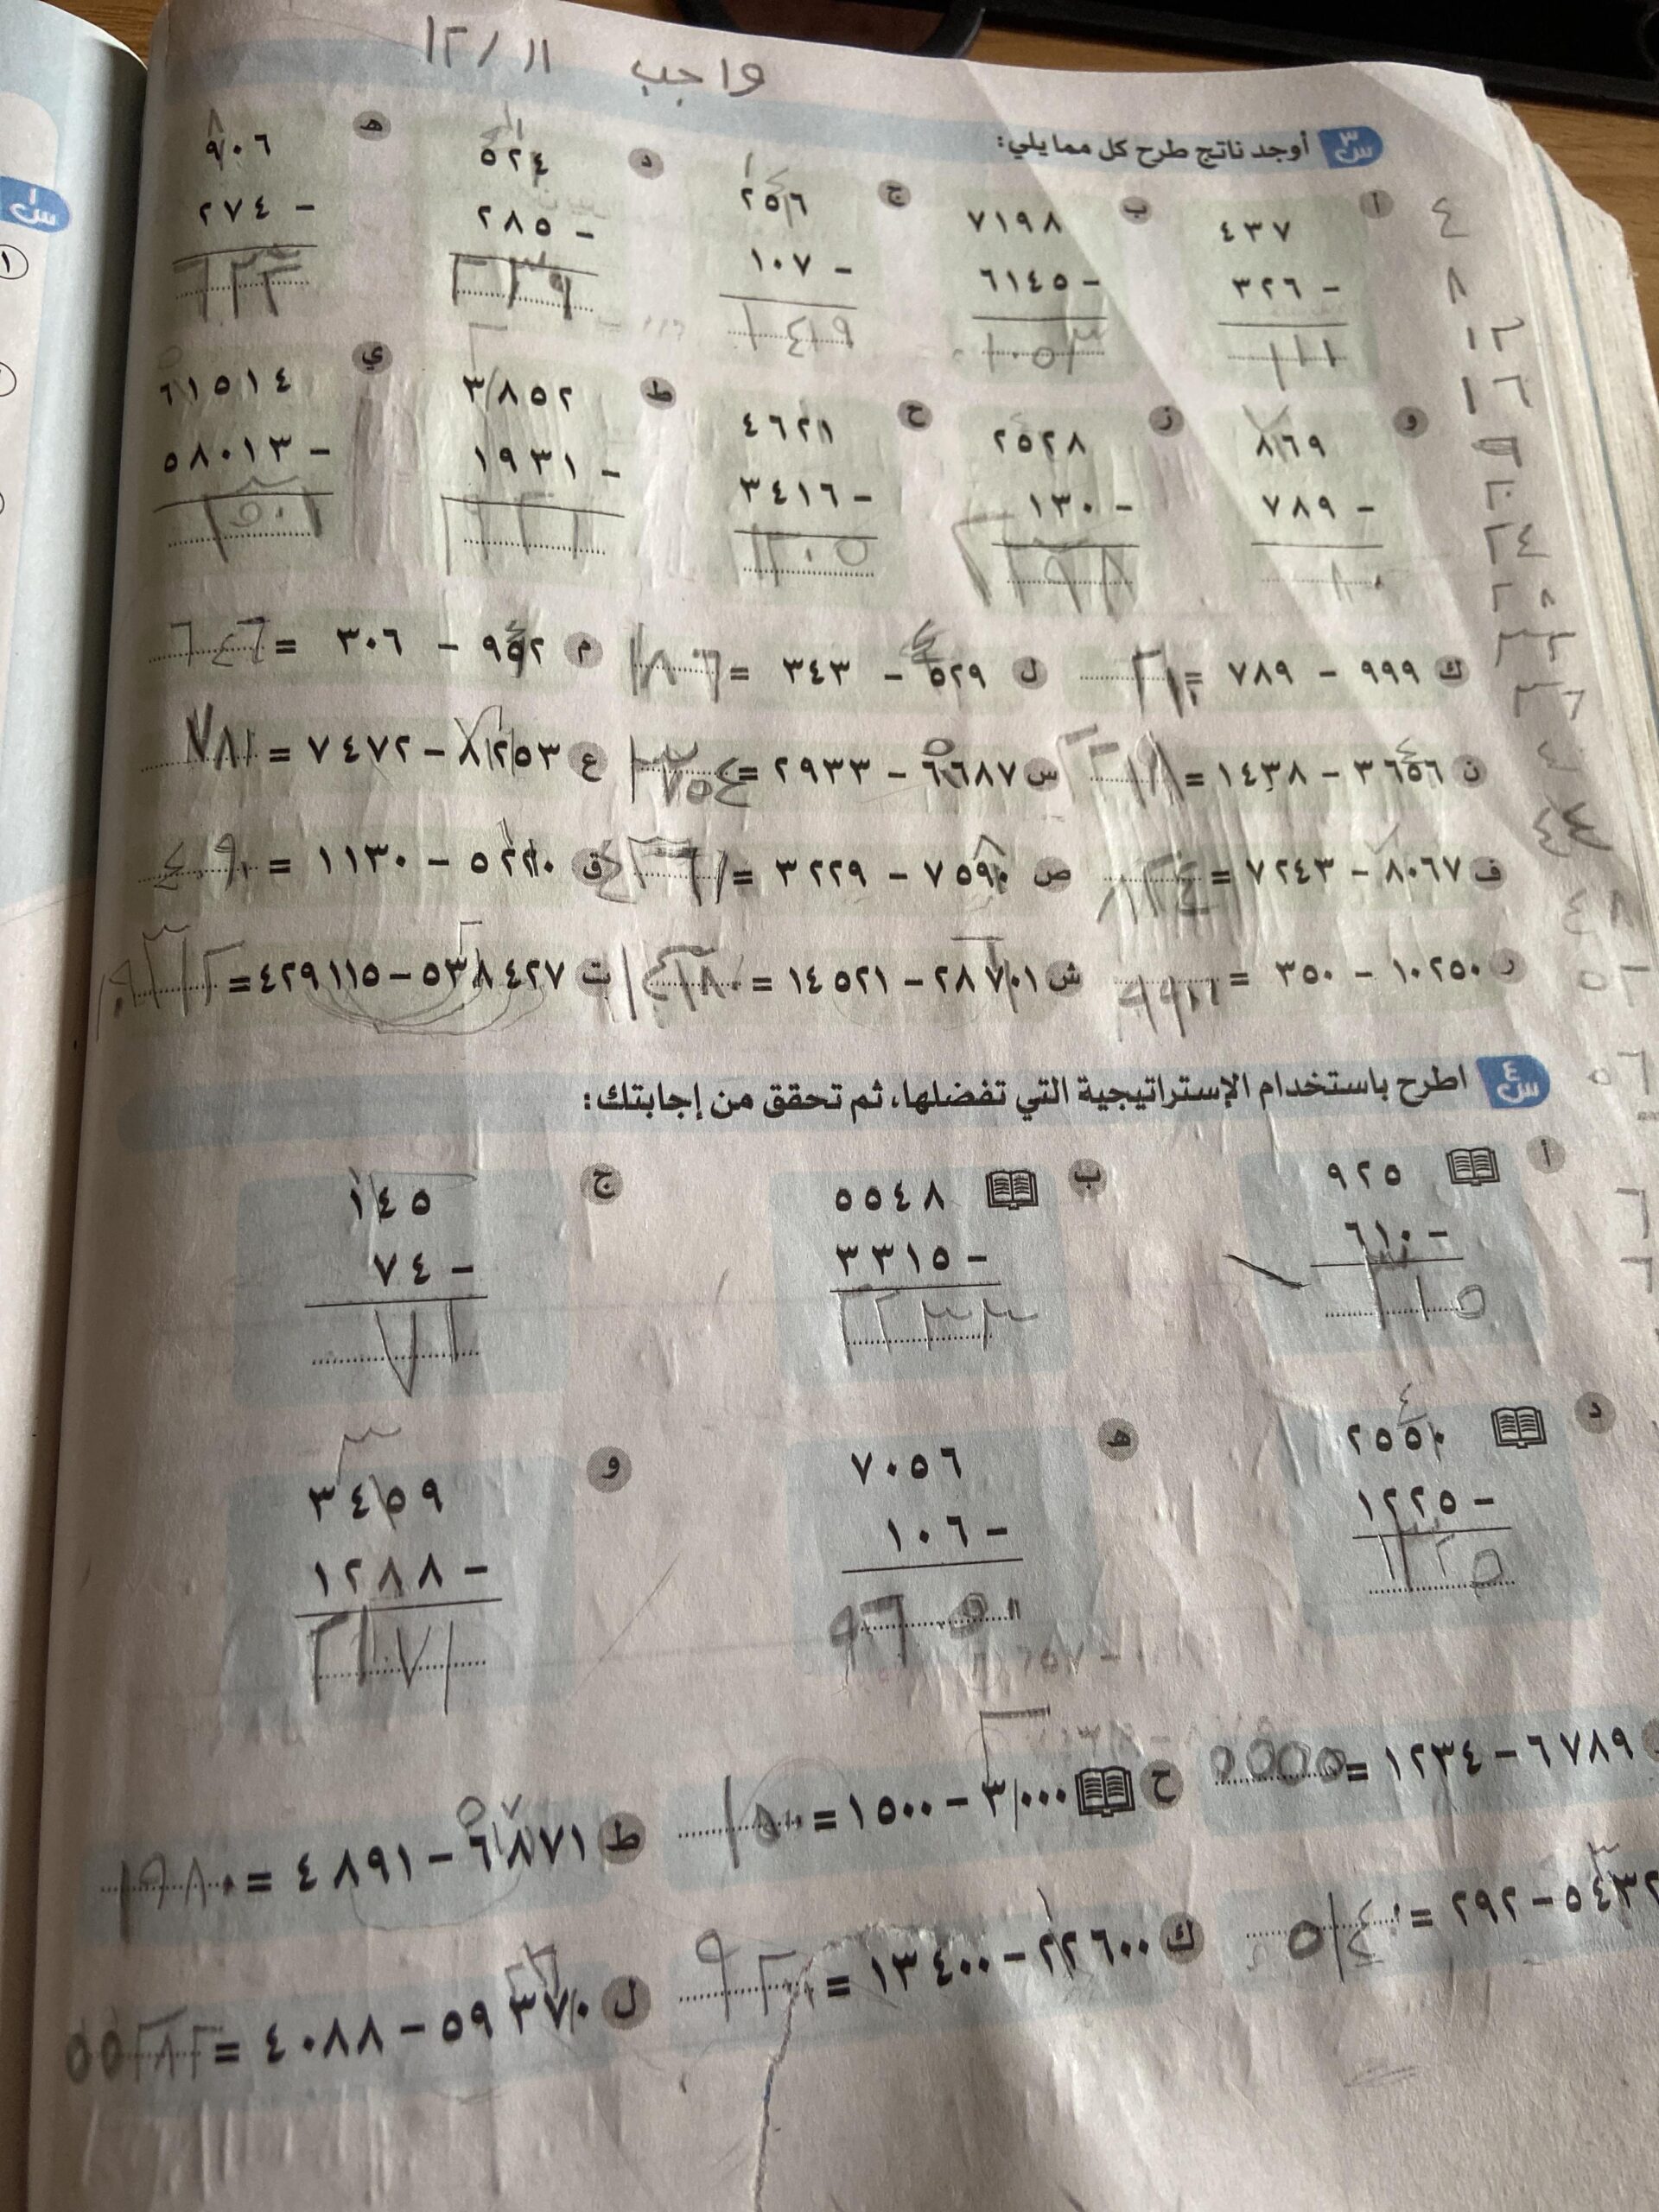 واجب ١٢/١١
س٣ أوجد ناتج طرح كل مما يلي:
أ ب ج د هـ
٤٣٧ ٧١٩٨ ٢٥٦ ٥٢٤ ٩٠٦
٣٢٦ − ٦١٤٥ − ١٠٧ − ٢٨٥ − ٢٧٤ −
١١١ ١٠٥٣ ١٤٩ ٢٣٩ ٦٣٢
و ز ح ط ي
٨٦٩ ٢٥٢٨ ٤٦٢١ ٣٨٥٢ ٦١٥١٤
٧٨٩ − ١٣٠ − ٣٤١٦ − ١٩٣١ − ٥٨٠١٣ −
٨٠ ٢٣٩٨ ١٢٠٥ ٣٥٠١
ك ٩٩٩ − ٧٨٩ = ٢١٠ ل ٥٢٩ − ٣٤٣ = ١٨٦ م ٩٥٢ − ٣٠٦ = ٦٤٦
ن ٣٦٥٦ − ١٤٣٨ = ٢٢١٨ س ٦٦٨٧ − ٢٩٣٣ = ٣٧٥٤ ع ٨٢٥٣ − ٧٤٧٢ = ٧٨١
ف ٨٠٦٧ − ٧٢٤٣ = ٨٢٤ ص ٧٥٩٠ − ٣٢٢٩ = ٤٣٦١ ق ٥٢٢٠ − ١١٣٠ = ٤٠٩٠
ر ١٠٢٥٠ − ٣٥٠ = ٩٩٠٠ ش ٢٨٧٠١ − ١٤٥٢١ = ١٤١٨٠ ت ٥٣٨٤٢٧ − ٤٢٩١١٥ = ١٠٩٣١٢
س٤ اطرح باستخدام الإستراتيجية التي تفضلها، ثم تحقق من إجابتك:
أ ب ج
٩٢٥ ٥٥٤٨ ١٤٥
٦١٠ − ٣٣١٥ − ٧٤ −
٣١٥ ٢٢٣٣ ٧١
د هـ و
٢٥٥٠ ٧٠٥٦ ٣٤٥٩
١٢٢٥ − ١٠٦ − ١٢٨٨ −
١٣٢٥ ٢١٧١
٦٧٨٩ − ١٢٣٤ = ٥٥٥٥ ح ٣٠٠٠ − ١٥٠٠ = ١٥٠٠ ط ٦٨٧١ − ٤٨٩١ = ١٩٨٠
٥٤٣٢ − ٢٩٢ = ٥١٤٠ ك ٢٢٦٠٠ − ١٣٤٠٠ = ٩٢٠٠ ل ٥٩٣٧٠ − ٤٠٨٨ = ٥٥٢٨٢